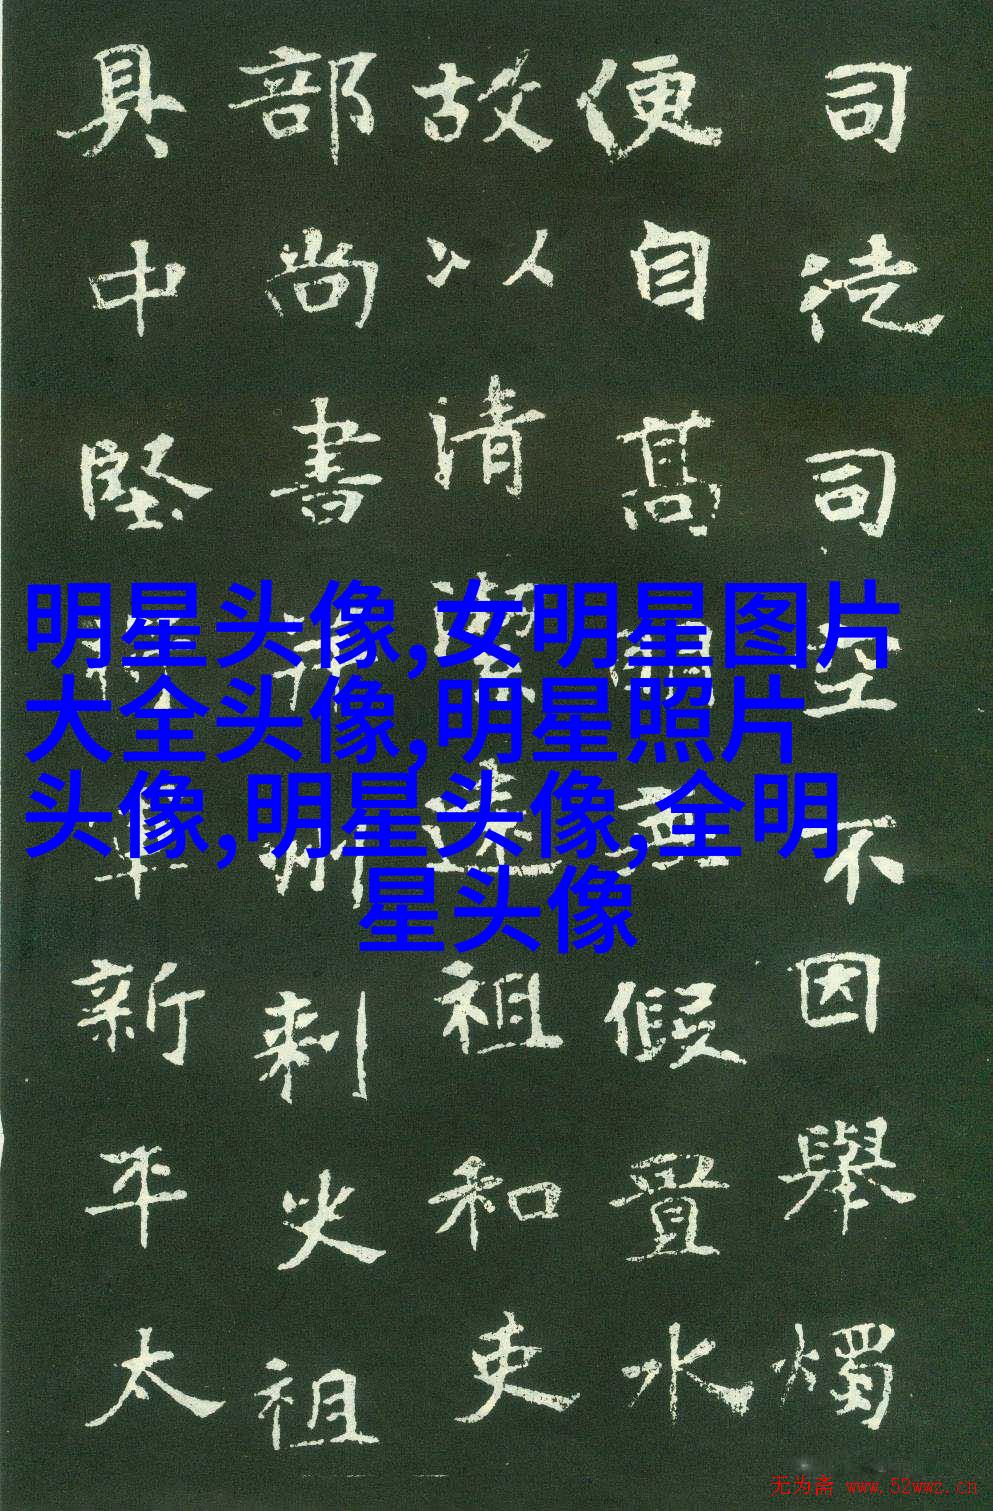 司徒司空不因舉燭
便自高閣更假置水
故以清潔遠祖和吏
部尚書祠州刺史祖
具中堅將軍新平太
明星头像,女明星图片
大全头像,明星照片
头像,明星头像,全明
星头像
无为斋 www.52wwz.cn